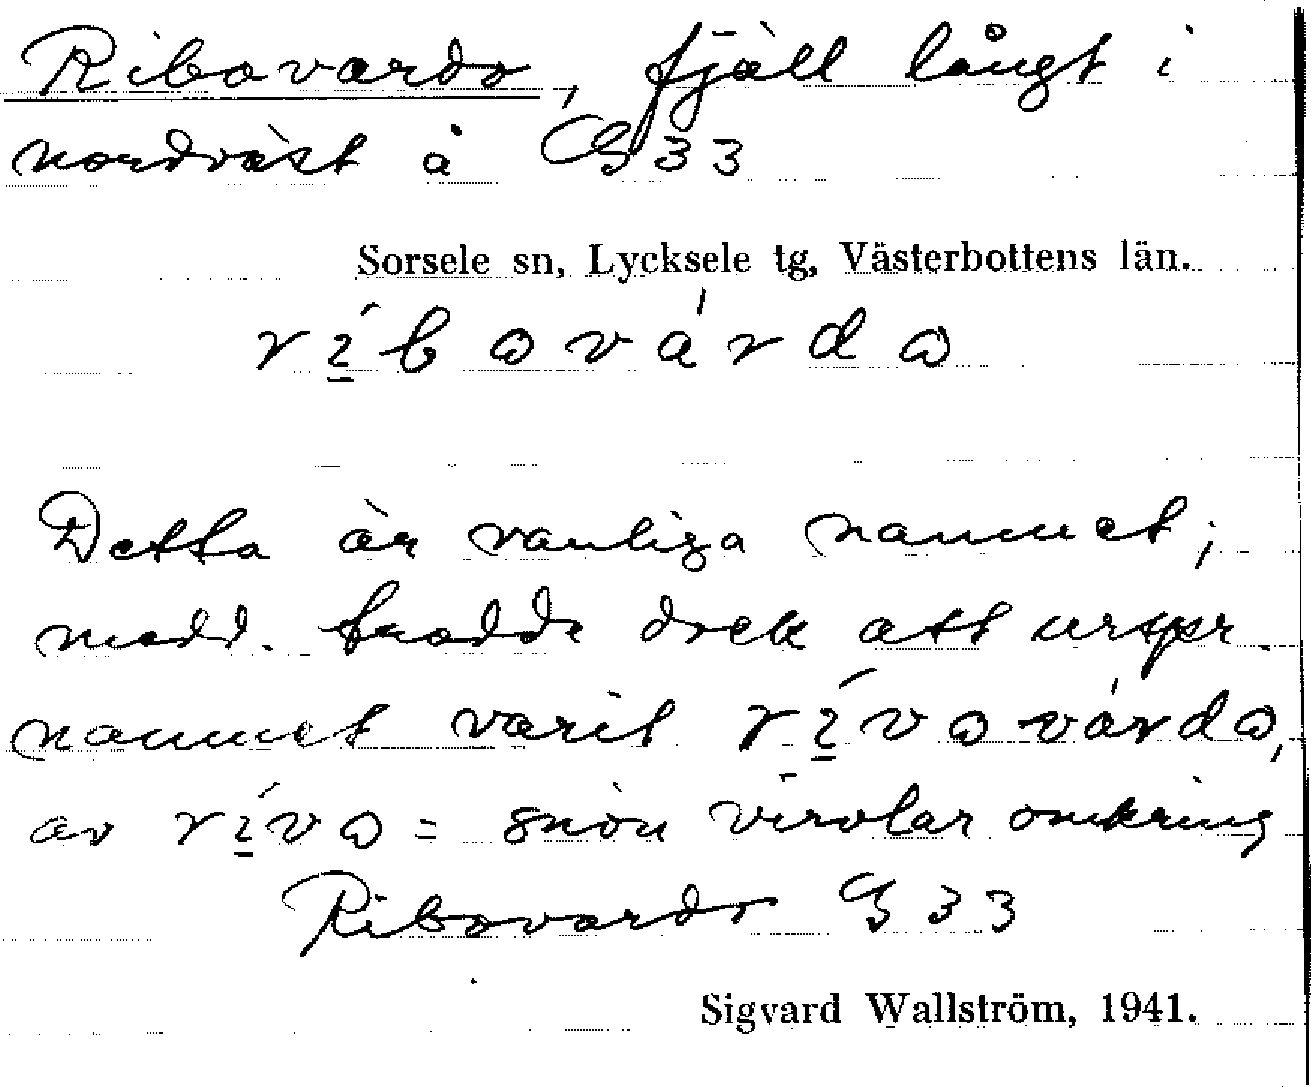 Ribovardo, fjäll långt i
nordväst å G 33
Sorsele sn, Lycksele tg, Västerbottens län.
ríbovárdo
Detta är vanliga namnet;
medd. trodde dock att urspr.
namnet varit rívovárdo,
av rívo = snön virvlar omkring
Ribovardo G 33
Sigvard Wallström, 1941.